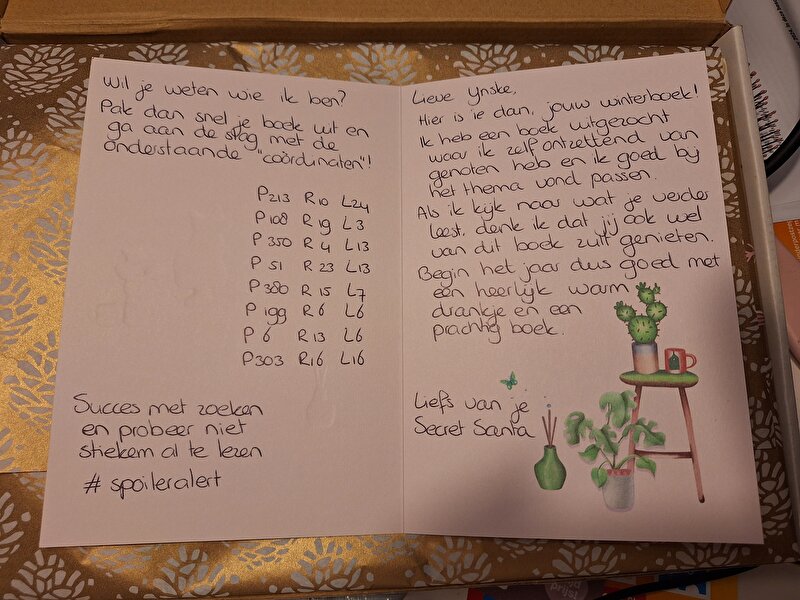 Wil je weten wie ik ben?
Pak dan snel je boek uit en
ga aan de slag met de
onderstaande "coördinaten"!
P213 R10 L24
P108 R19 L3
P350 R4 L13
P51 R23 L13
P380 R15 L7
P199 R6 L6
P6 R13 L6
P303 R16 L16
Succes met zoeken
en probeer niet
stiekem al te lezen
# spoileralert
Lieve Ynske,
Hier is ie dan, jouw winterboek!
Ik heb een boek uitgezocht
waar ik zelf ontzettend van
genoten heb en ik goed bij
het thema vond passen.
Als ik kijk naar wat je verder
leest, denk ik dat jij ook wel
van dit boek zult genieten.
Begin het jaar dus goed met
een heerlijk warm
drankje en een
prachtig boek.
Liefs van je
Secret Santa